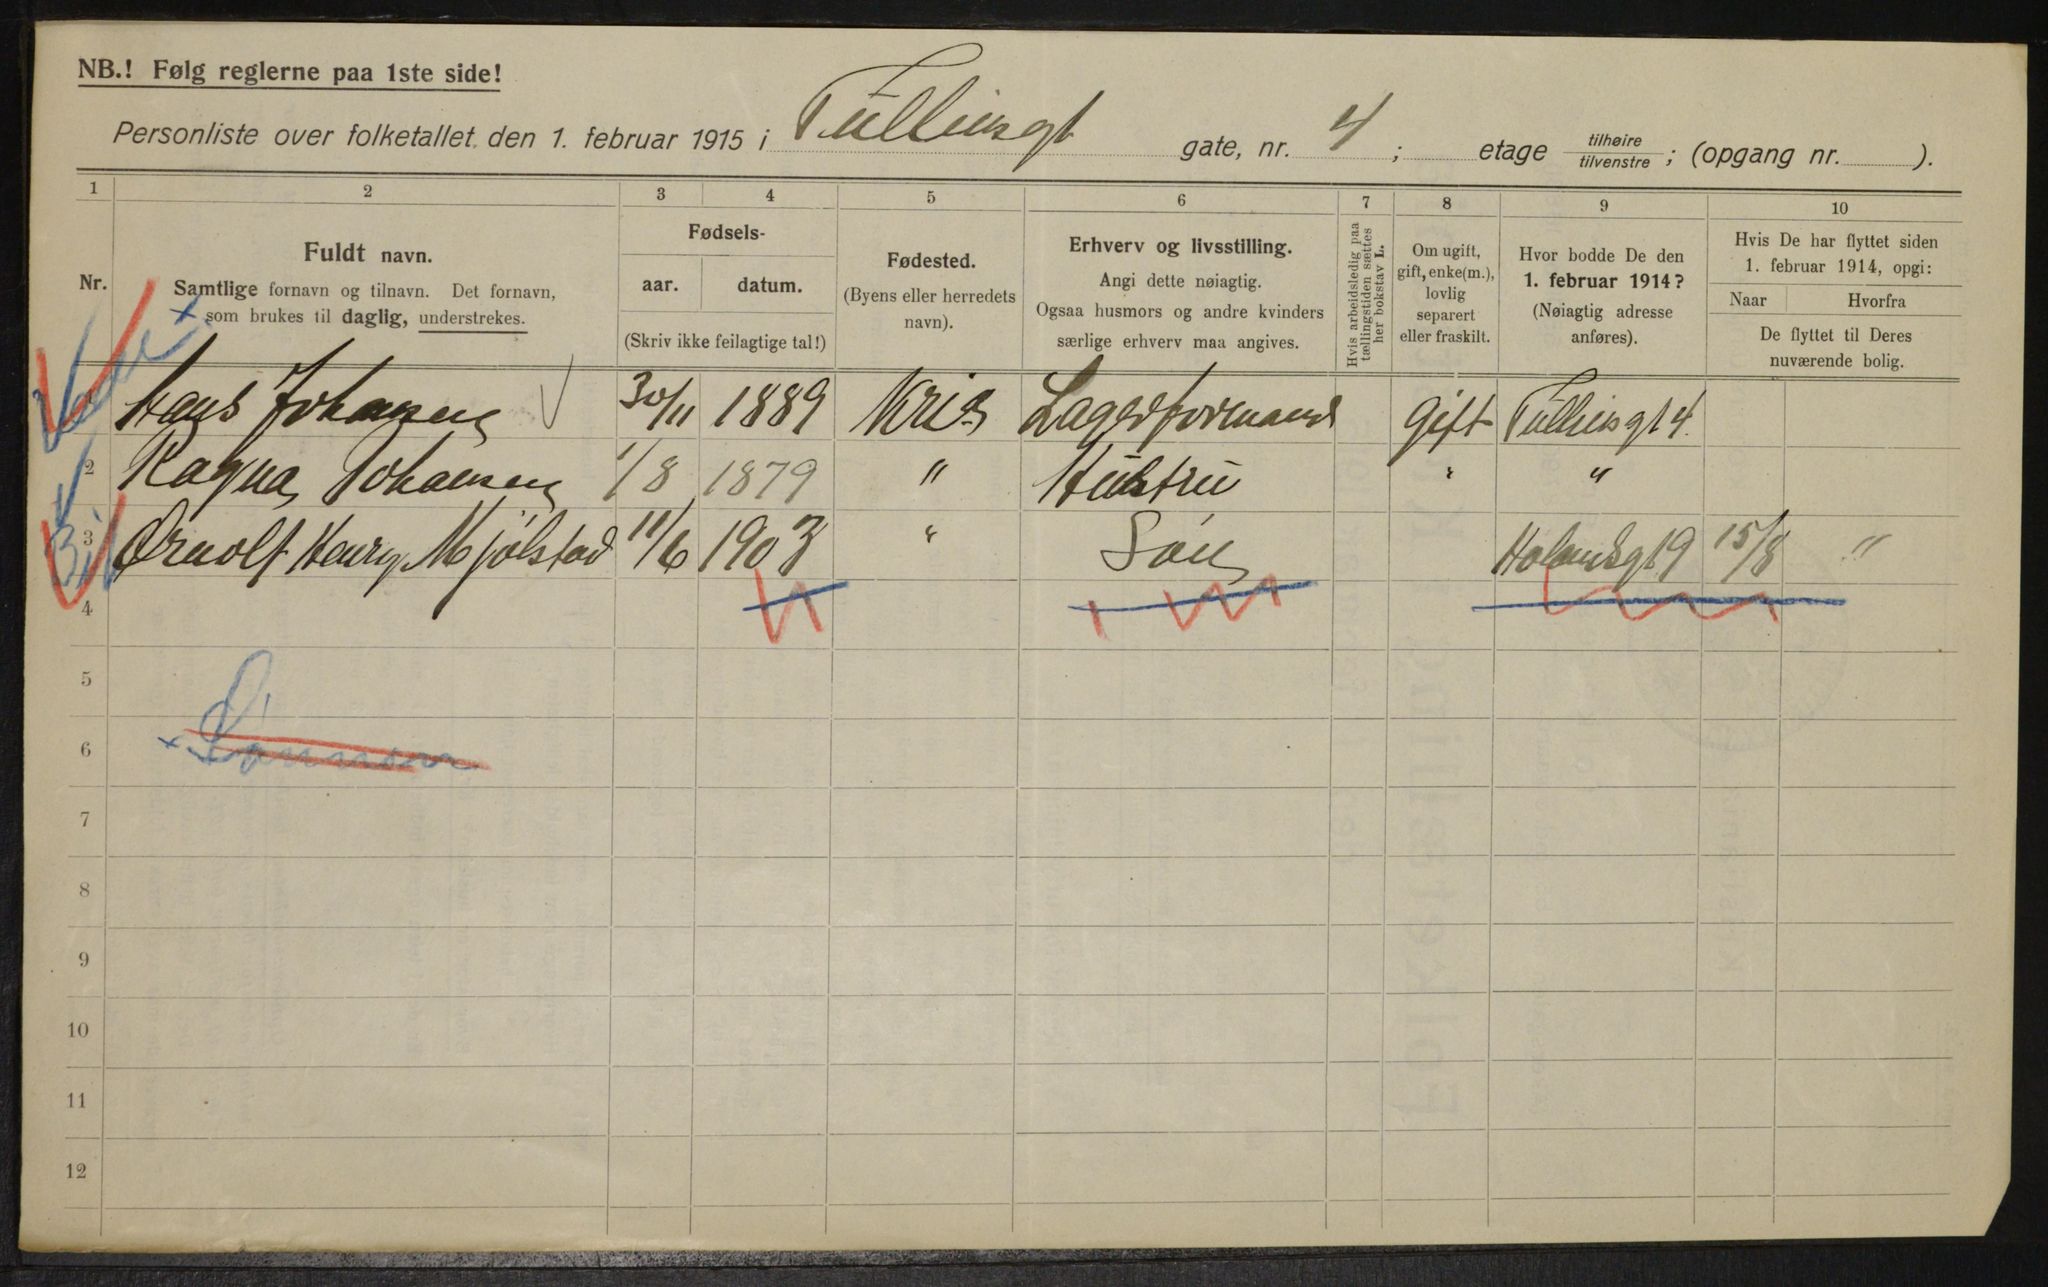 NB.! Følg reglerne paa 1ste side!
Personliste over folketallet den 1. februar 1915 i Tullinsgt gate, nr. 4; etage tilhøire tilvenstre; (opgang nr. ).
1 2 3 4 5 6 7 8 9 10
Nr.
Fuldt navn.
Samtlige fornavn og tilnavn. Det fornavn,
som brukes til daglig, understrekes.
Fødsels-
aar. datum.
(Skriv ikke feilagtige tal!)
Fødested.
(Byens eller herredets
navn).
Erhverv og livsstilling.
Angi dette nøiagtig.
Ogsaa husmors og andre kvinders
særlige erhverv maa angives.
Hvis arbeidsledig paa
tællingstiden sættes
her bokstav L.
Om ugift,
gift, enke(m.),
lovlig
separert
eller fraskilt.
Hvor bodde De den
1. februar 1914?
(Nøiagtig adresse
anføres).
Hvis De har flyttet siden
1. februar 1914, opgi:
Naar Hvorfra
De flyttet til Deres
nuværende bolig.
1 Hans Johansen 30/11 1889 Kria Lagerformand gift Tullinsgt 4.
2 Ragna Johansen 1/8 1879 " Hustru " "
3 Arnolt Henry Mjølstad 11/6 1903 " Søn Holmensgt 9 15/8 "
4
5
6
7
8
9
10
11
12